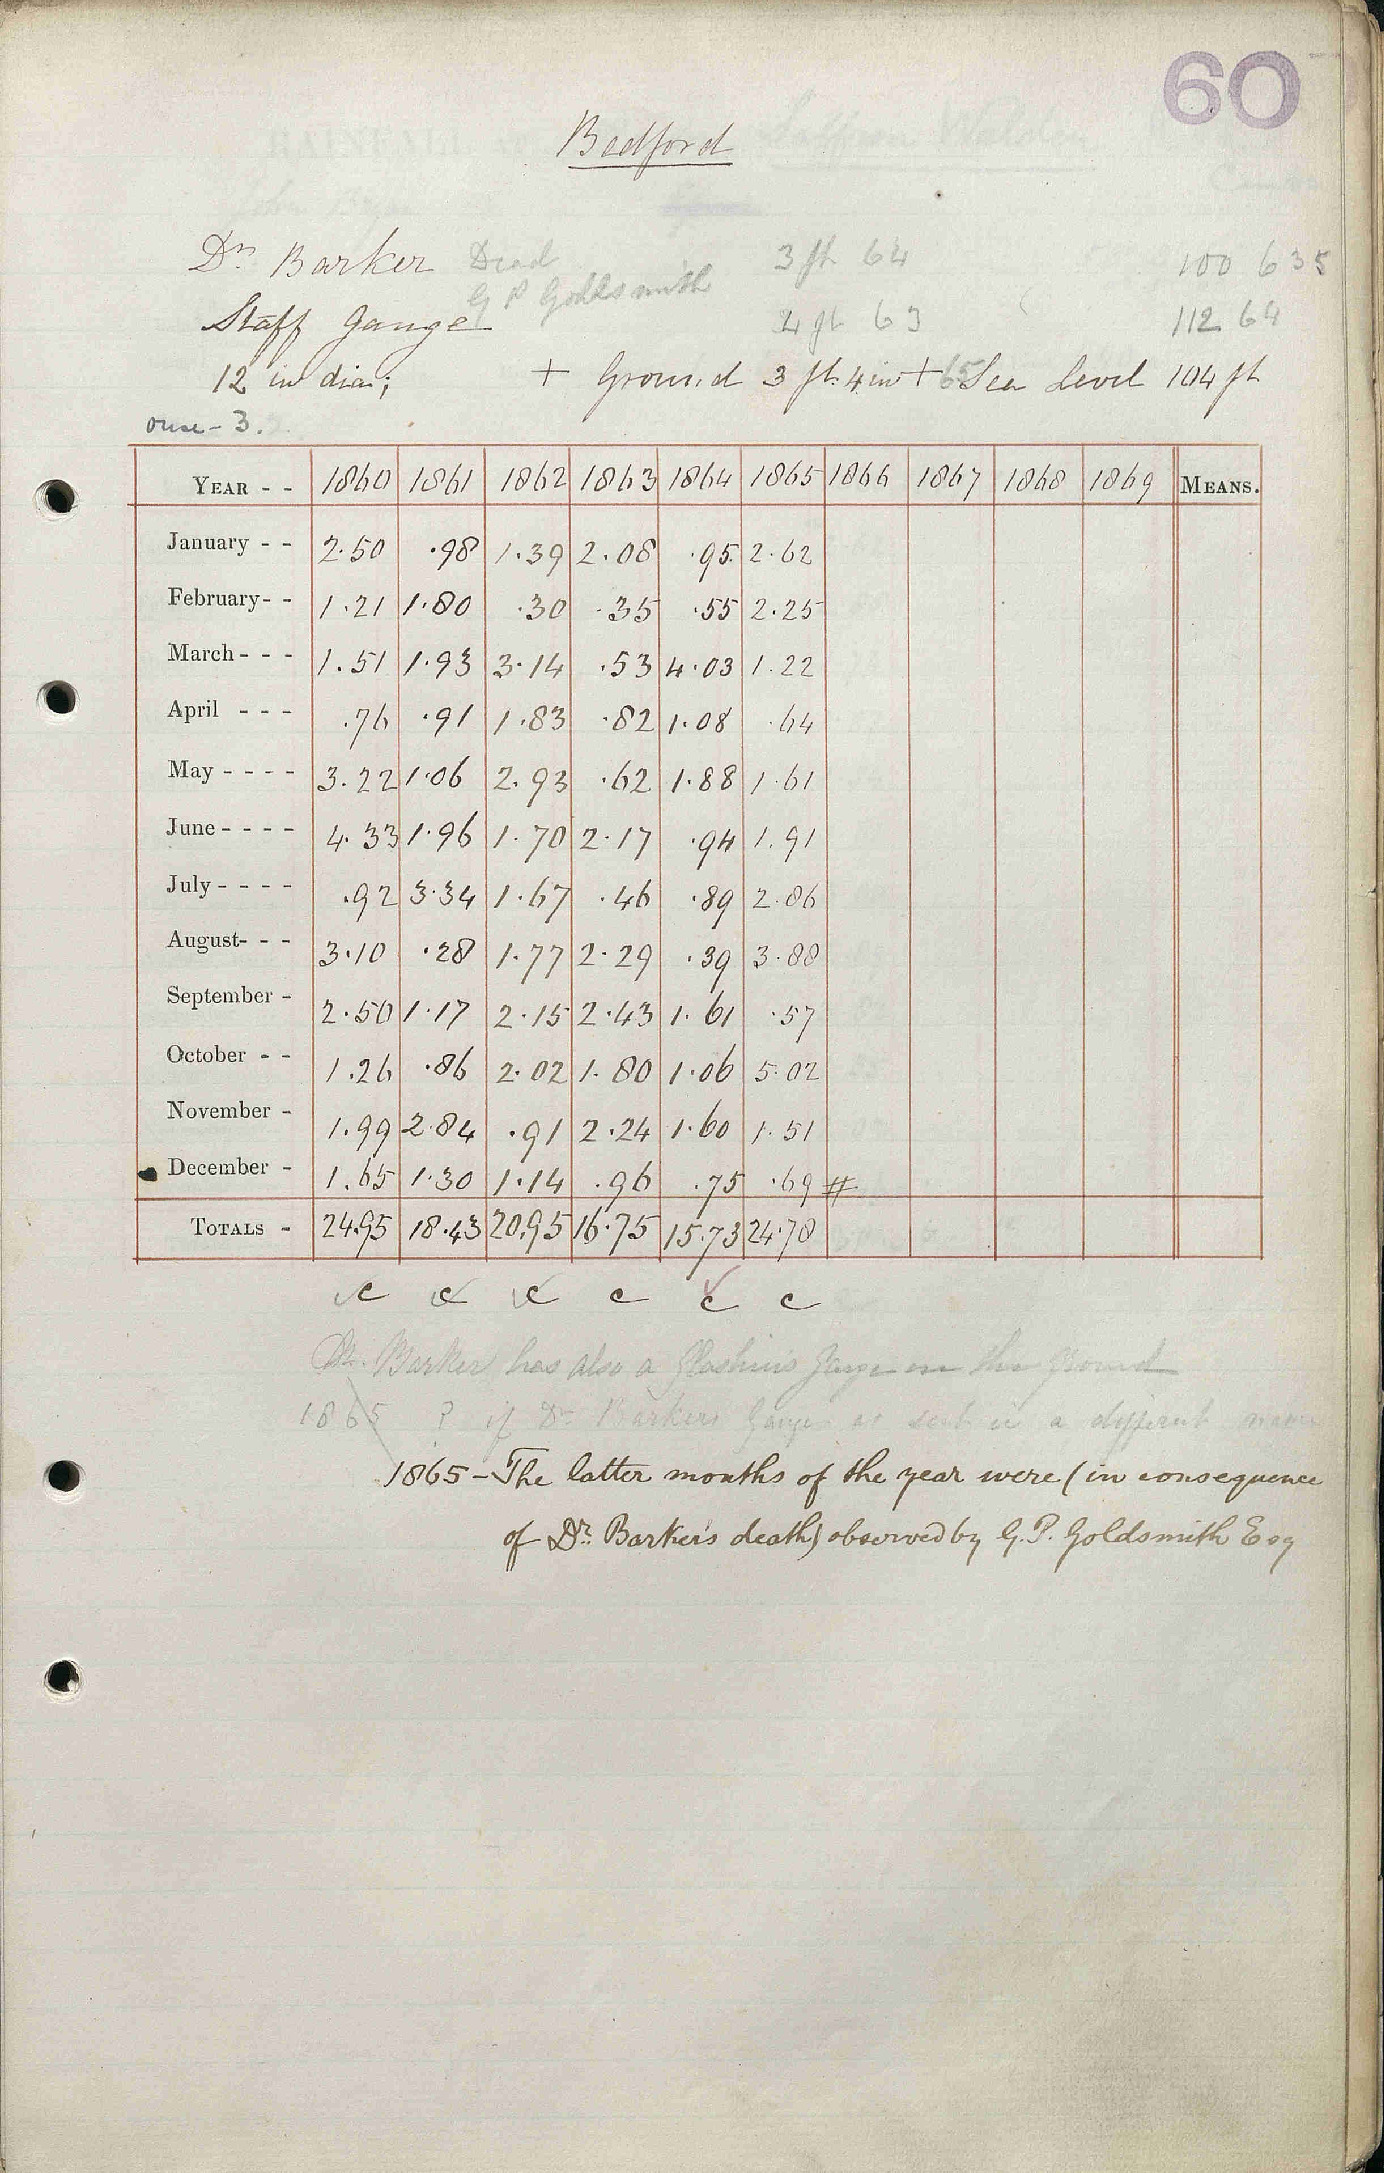 60
Bedford
Dr. Barker Dead 3 ft 64 100 635
G P Goldsmith
Staff Gauge 4 ft 63 112 64
12 in dia; + Ground 3 ft. 4 in + 65 Sea Level 104 ft
Ouse - 3.
YEAR - - 1860 1861 1862 1863 1864 1865 1866 1867 1868 1869 MEANS.
January - - 2.50 .98 1.39 2.08 .95 2.62
February- - 1.21 1.80 .30 .35 .55 2.25
March - - - 1.51 1.93 3.14 .53 4.03 1.22
April - - - .76 .91 1.83 .82 1.08 .64
May - - - - 3.22 1.06 2.93 .62 1.88 1.61
June - - - - 4.33 1.96 1.70 2.17 .94 1.91
July - - - - .92 3.34 1.67 .46 .89 2.86
August- - - 3.10 .28 1.77 2.29 .39 3.88
September - 2.50 1.17 2.15 2.43 1.61 .57
October - - 1.26 .86 2.02 1.80 1.06 5.02
November - 1.99 2.84 .91 2.24 1.60 1.51
December - 1.65 1.30 1.14 .96 .75 .69 #
TOTALS - 24.95 18.43 20.95 16.75 15.73 24.78
c c c c c c
Dr. Barker has also a Glaishers Gauge on the ground
1865 ? if Dr Barkers Gauge as sent is a different
1865 - The latter months of the year were (in consequence
of Dr. Barker's death) observed by G. P. Goldsmith Esq